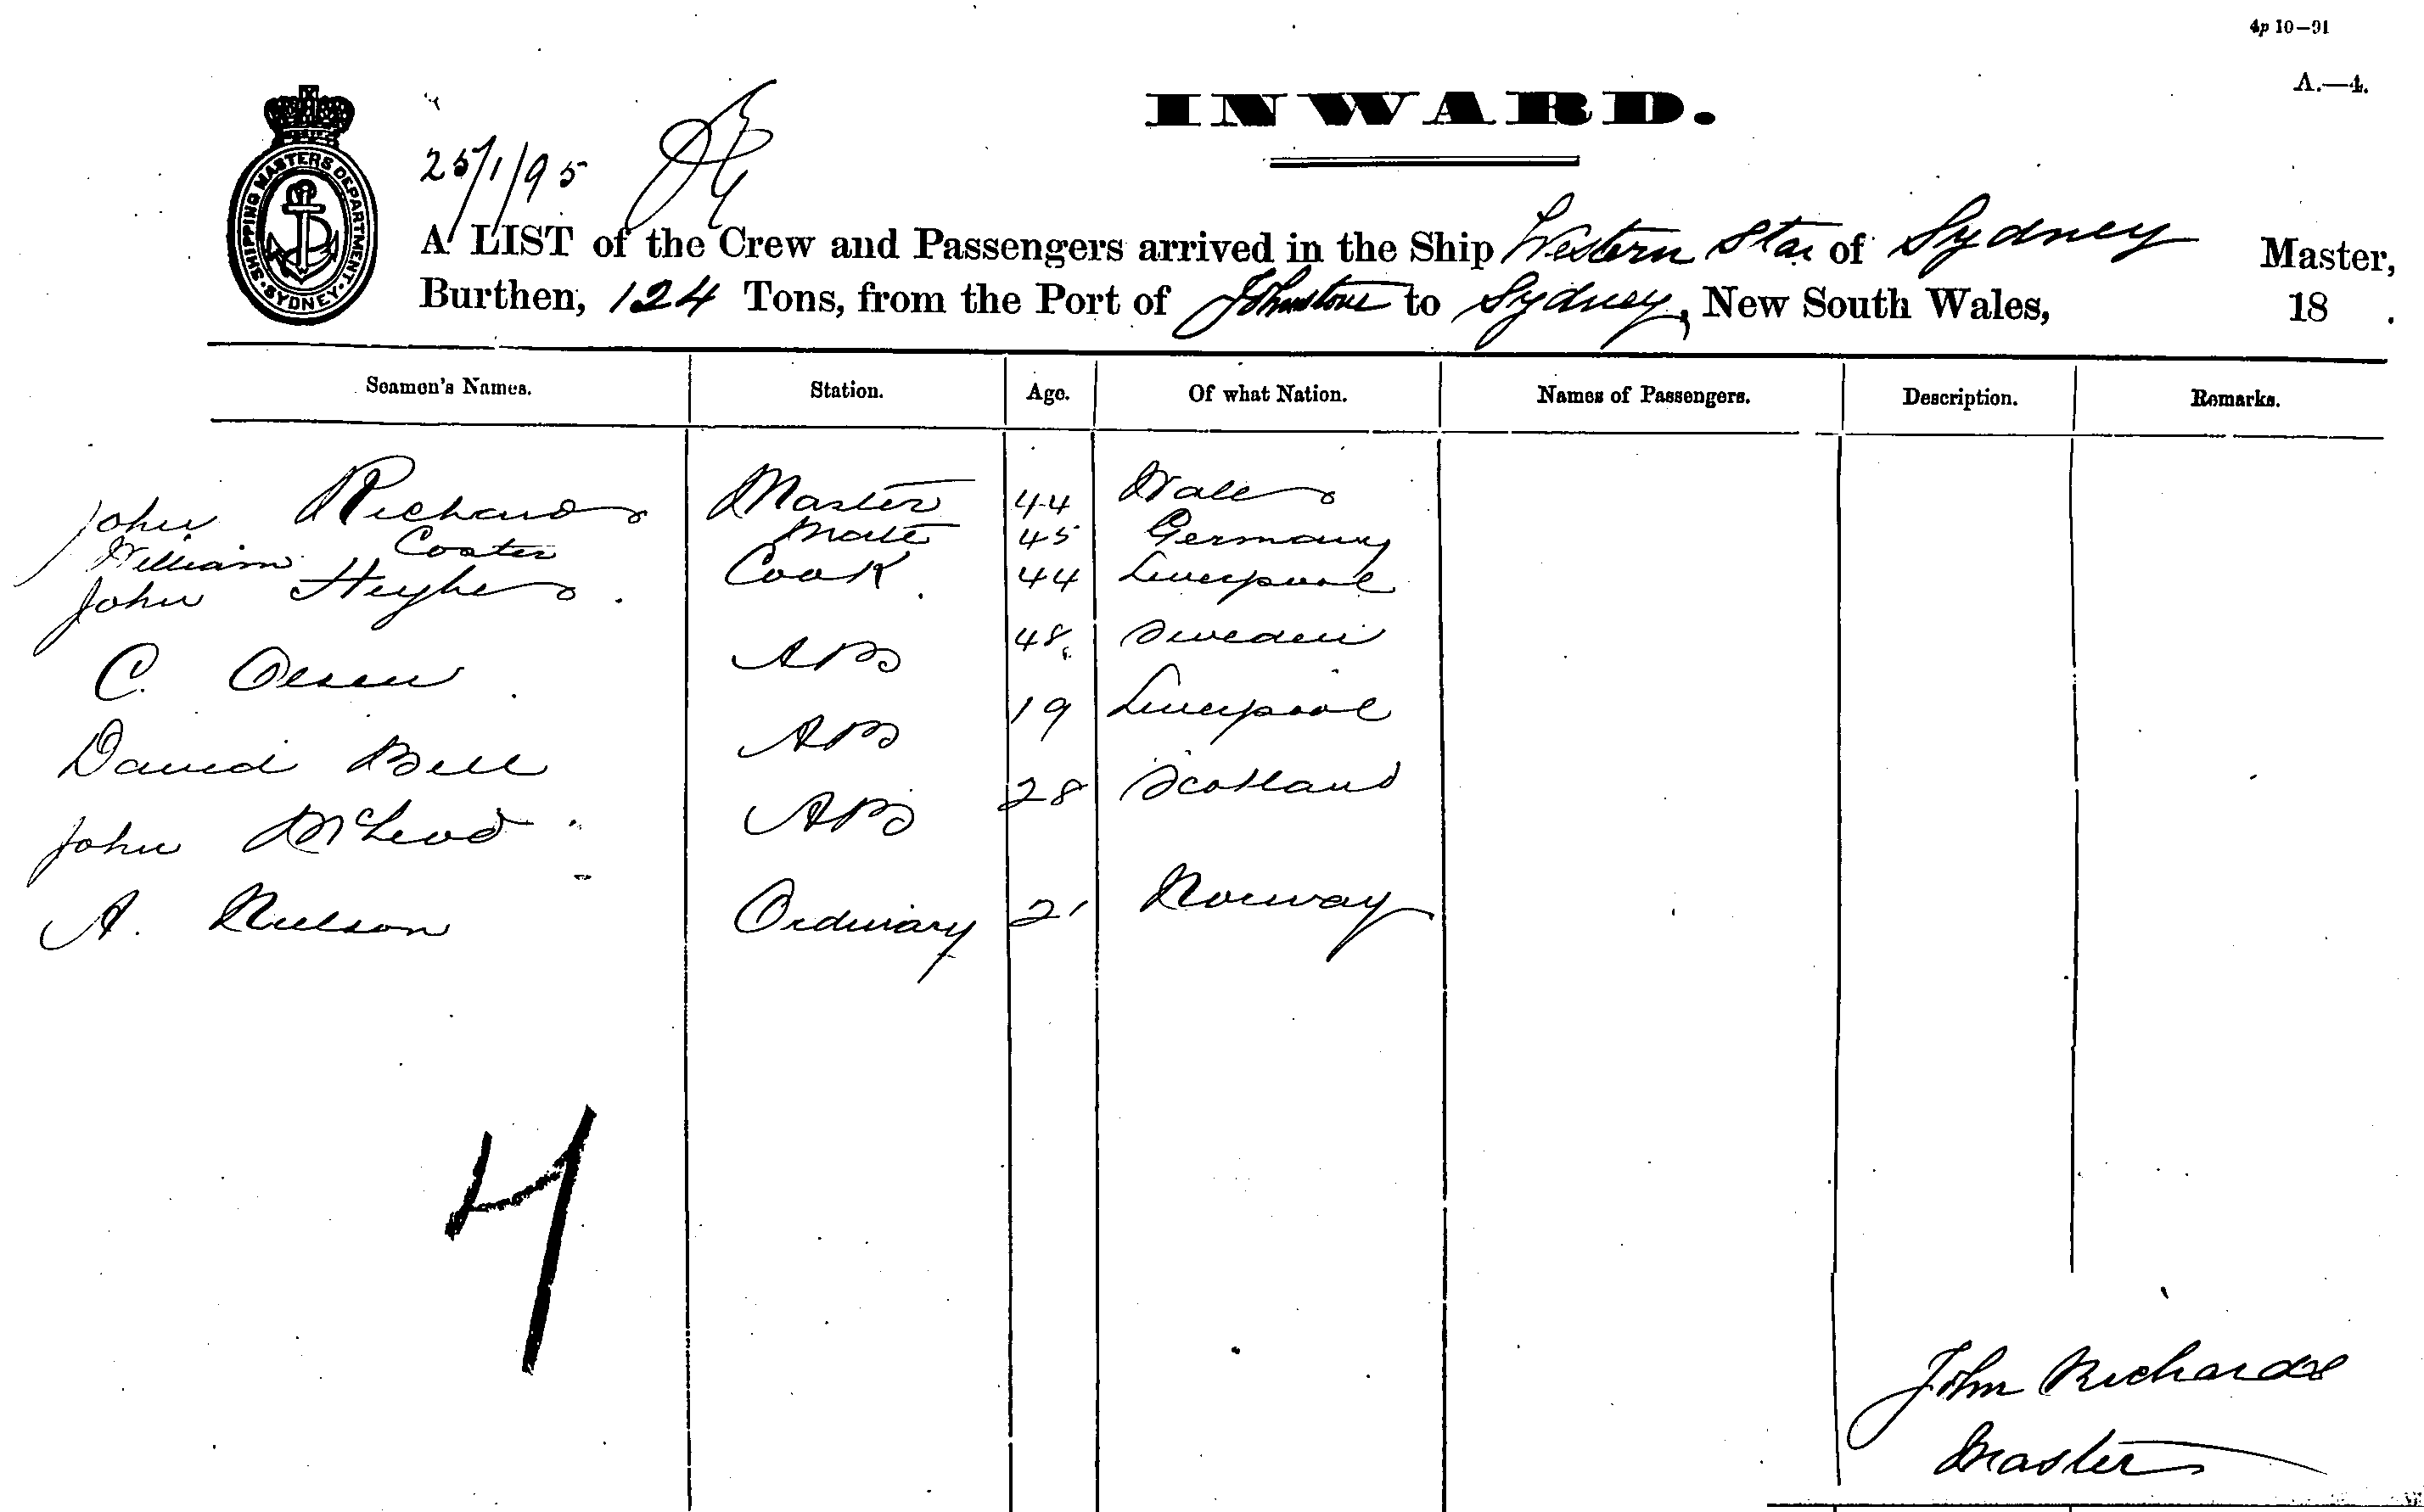 4p 10—91
A.—4.
INWARD.
SHIPPING MASTERS DEPARTMENT
SYDNEY
25/1/95
A LIST of the Crew and Passengers arrived in the Ship Western Star of Sydney Master,
Burthen, 124 Tons, from the Port of Johnstone to Sydney, New South Wales, 18 .
Seamen's Names. Station. Age. Of what Nation. Names of Passengers. Description. Remarks.
John Richards Master 44 Wales
William Coster Mate 45 Germany
John Hughes Cook 44 Liverpool
C. Olsen AB 48 Sweden
David Bell AB 19 Liverpool
John McLeod AB 28 Scotland
A. Neilson Ordinary 21 Norway
4
John Richards
Master